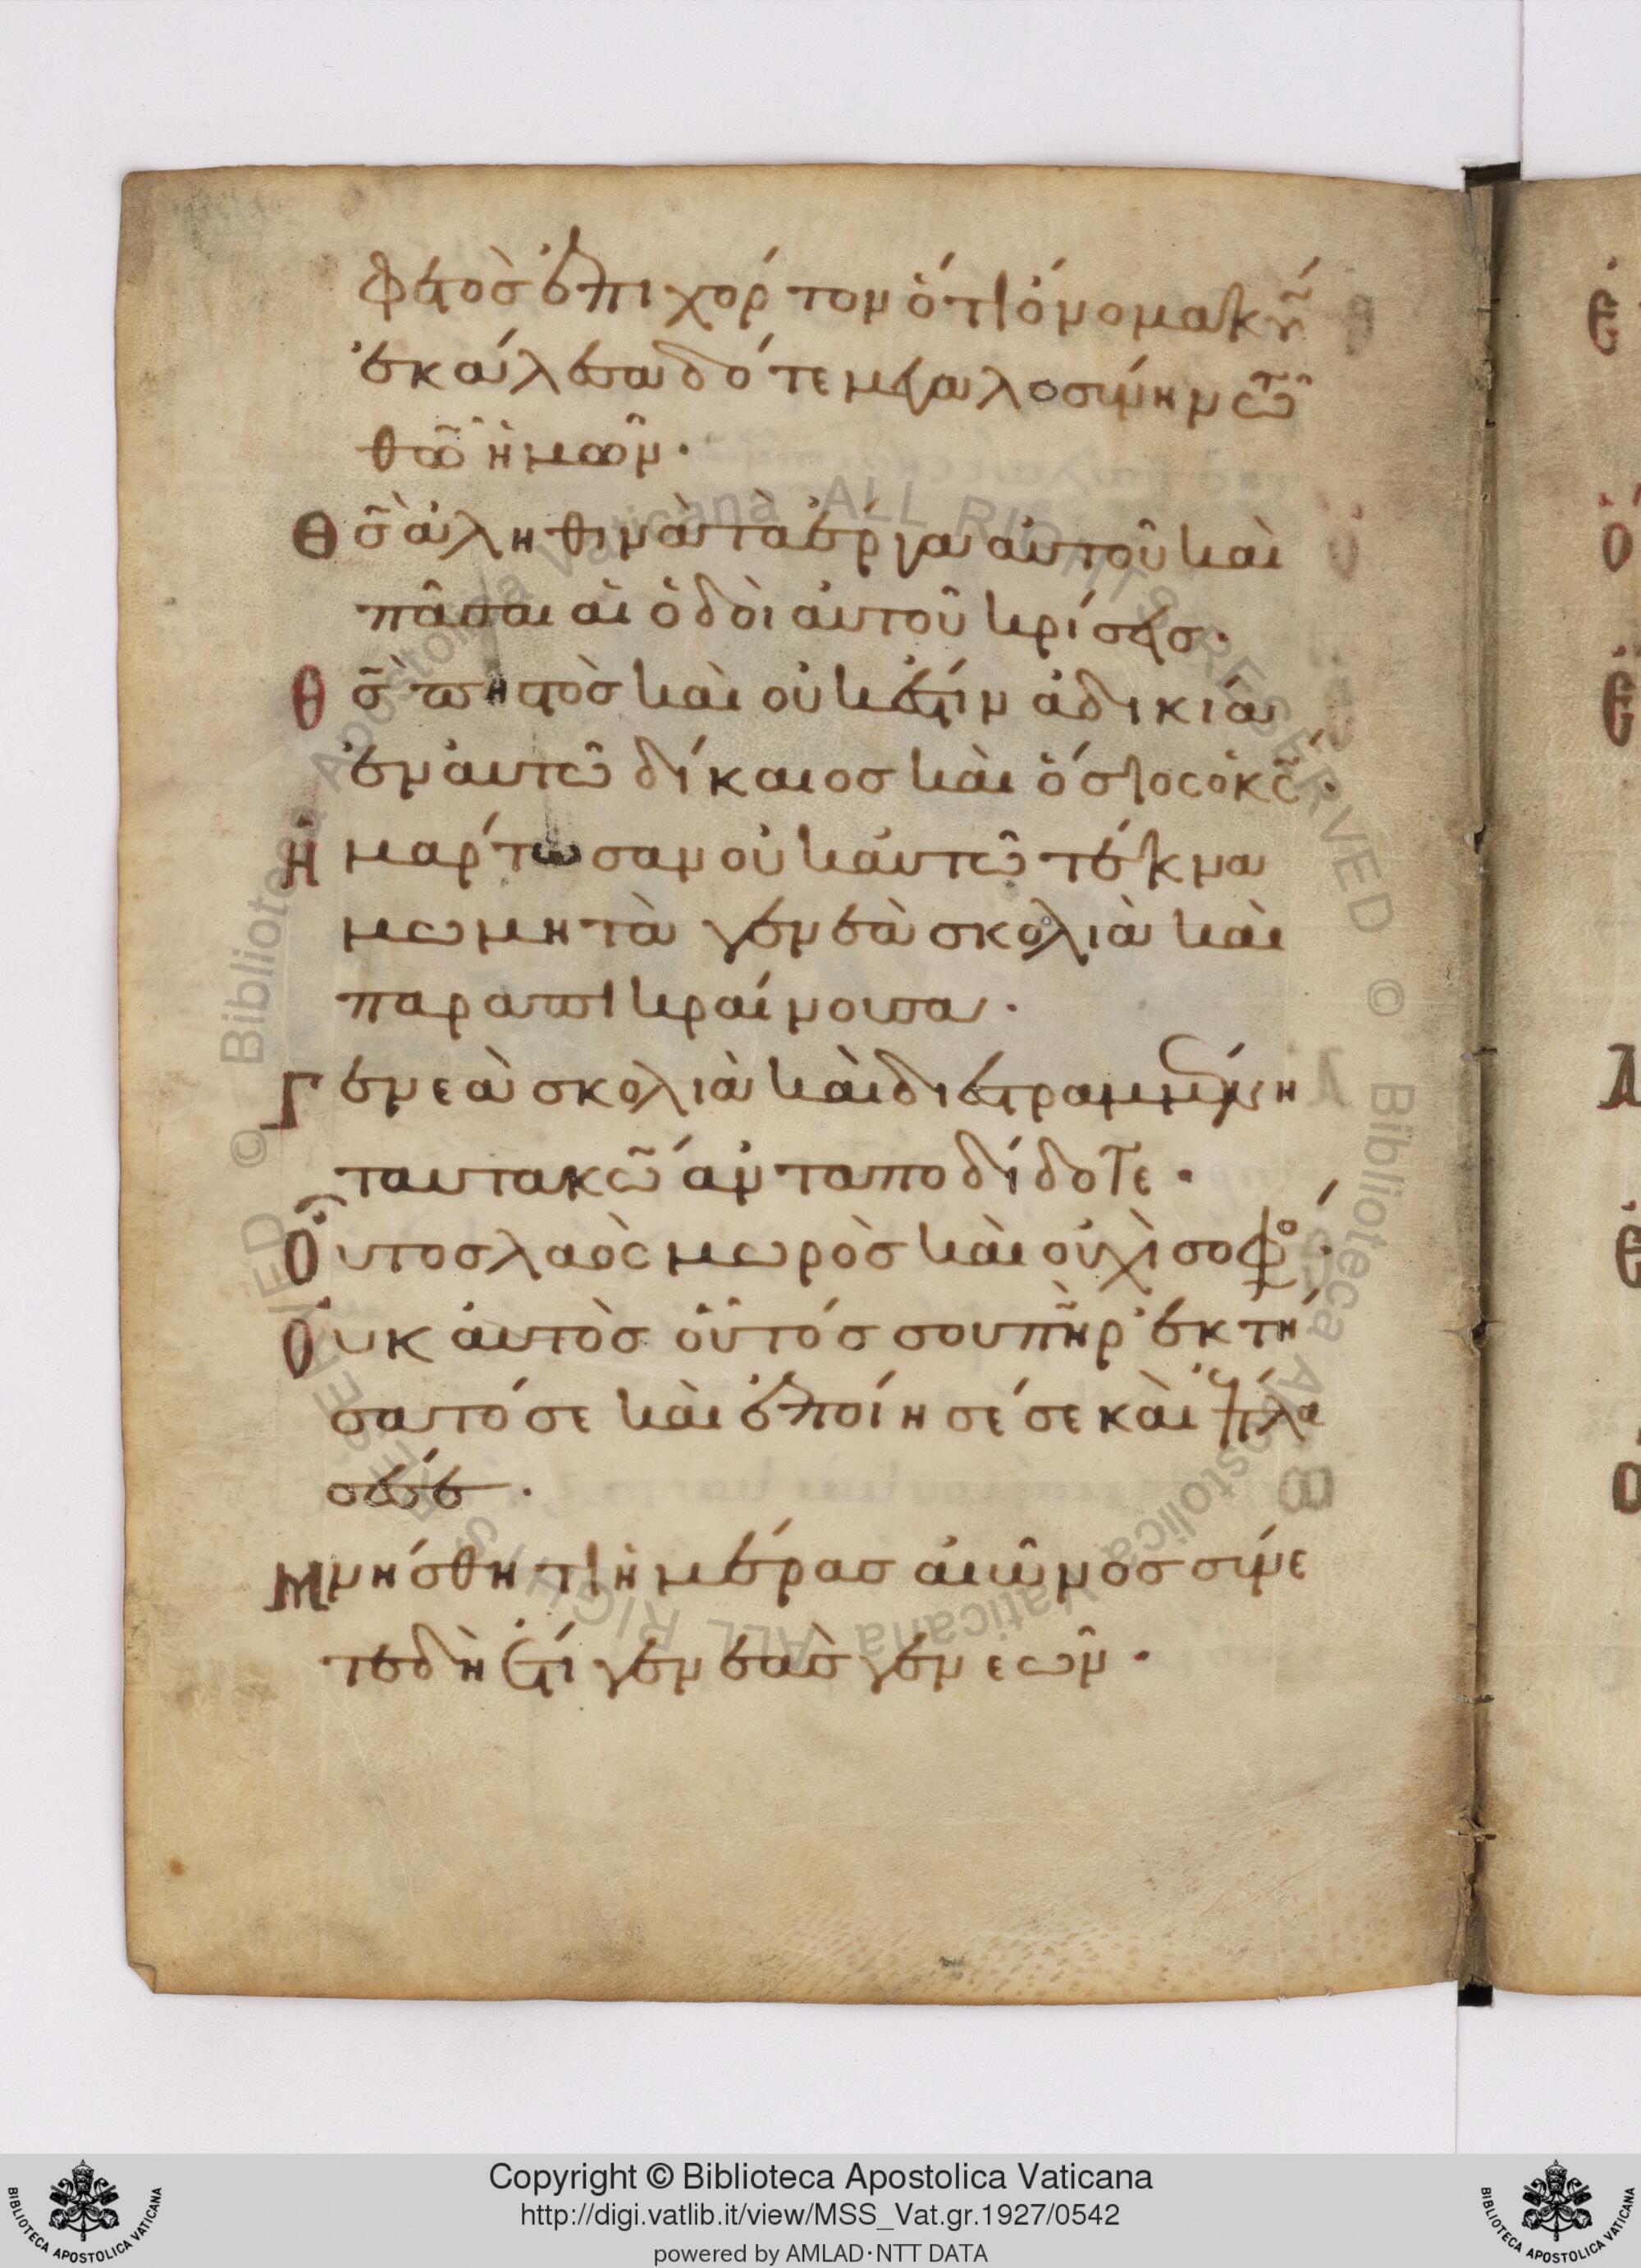 φετὸσ ἐπι χόρτον ὅτι ὄνομα κῡ
ἐκάλεσα δότε μεγαλοσύνην τῶ
θῶ ἡμῶν·
Θσ̄ ἀληθινὰ τὰ ἔργα ἀυτοῦ καὶ
πᾶσαι αἱ ὁδοὶ ἀυτοῦ κρίσεισ·
Θσ̄ πιστὸσ καὶ οὐκ ἔστιν ἀδικία
ἐν ἀυτῶ δίκαιοσ καὶ ὅσιοσ ὁ κσ̄·
Ἡμάρτωσαν οὐκ ἀυτῶ τέκνα
μωμητὰ γενεὰ σκολιὰ καὶ
παραπικραίνουσα·
Γενεὰ σκολιὰ καὶ διεστραμμένη
ταυτα κῶ ἀνταποδίδοτε·
Οὗτοσ λαὸσ μωρὸσ καὶ οὐχὶ σοφο·
Οὐκ ἀυτὸσ οὗτόσ σου πη̄ρ ἐκτή
σατό σε καὶ ἐποίησέ σε καὶ ἔπλα
σέσε·
Μνήσθητι ἡμέρασ ἀιῶνοσ σύνε
τε δὴ ἔτι γενεὰσ γενεῶν·
Copyright © Biblioteca Apostolica Vaticana
http://digi.vatlib.it/view/MSS_Vat.gr.1927/0542
powered by AMLAD·NTT DATA
BIBLIOTECA APOSTOLICA VATICANA
BIBLIOTECA APOSTOLICA VATICANA
© Biblioteca Apostolica Vaticana ALL RIGHTS RESERVED
© Biblioteca Apostolica Vaticana ALL RIGHTS RESERVED